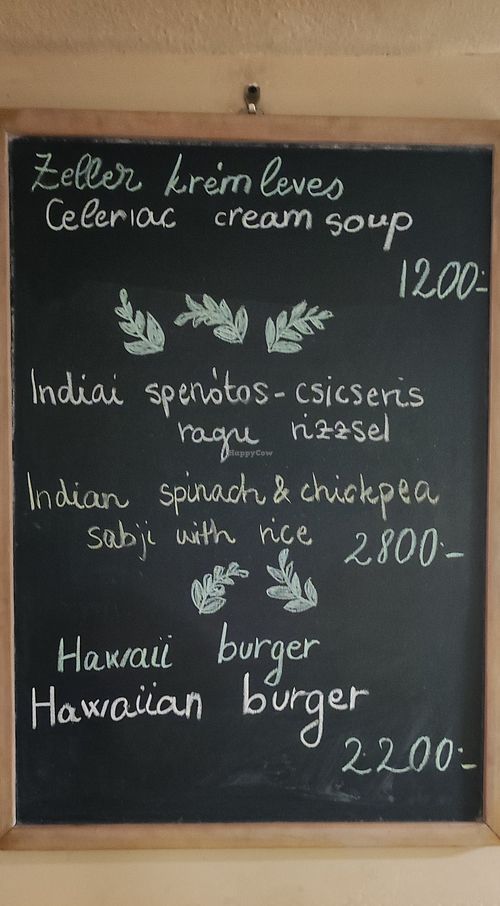 Zeller krém leves
Celeriac cream soup
1200.-
Indiai spenótos-csicseris
ragu rizzsel
HappyCow
Indian spinach & chickpea
sabji with rice
2800.-
Hawaii burger
Hawaiian burger
2200.-